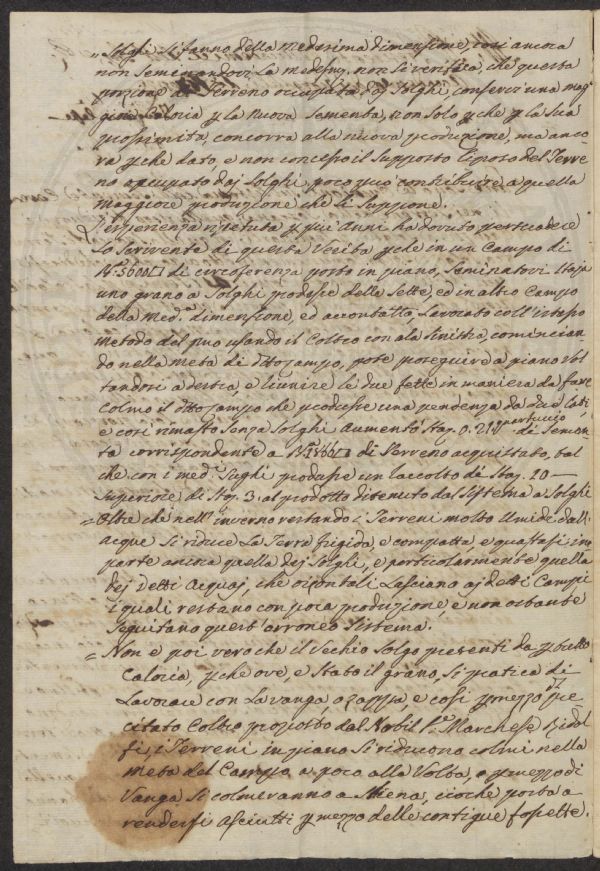 „ Solghi si fanno della medesima dimensione, così ancora
non seminandovi la medesma, non si verifica, che questa
porzione di Terreno occupata dej Solghi, conferisci una mag
giore Caloria p la nuova Sementa, non solo p che p la sua
prossimita, concorra alla nuova produzione, ma anco
ra p che dato, e non concesso il supposto riposo del Terre
no occupato dej Solghi, poco può contribuire a quella
maggiore produzione che si suppone.
L'esperienza ripetuta p più anni ha dovuto persuadere
lo scrivente di questa Verità p che in un Campo di
di circonferenza posto in piano, seminatovi Staja
uno grano a Solghi produsse delle Sette, ed in altro Campo
della Med.a dimensione, ed accontatto, Lavorato coll'istesso
metodo del puo usando il Coltro con ala sinistra, comincian
do nella metà di d.tto Campo, potè proseguire a piano vol
tandosi a destra, e riunire le due fette in maniera da fare
colmo il d.tto Campo che produsse una pendenza da due lati,
e così rimasto senza Solghi aumentò Staj. 0. quartuccio di Semen
ta corrispondente a di Terreno acquistato, tal
che con i med.i Sughi produsse un raccolto di Staj. 10 —
superiore di Staj. 3. al prodotto ottenuto dal Sistema a Solghi
= Oltre che nell'inverno restando i Terreni molto umidi dall'
acque si riduce la Terra frigida, e compatta, e guastasi in
parte ancora quella dej Solghi, e particolarmente quella
dej detti Acquaj, che orizontali lasciano aj detti Campi
i quali restano con poca produzione, e non ostante
seguitano quest'erroneo sistema.
= Non è poi vero che il Vechio Solgo presenti da p tutto
Caloria, p che ove, è stato il grano, si pratica di
Lavorare con la vanga, o zappa, e così p mezzo il pre
citato Coltro prodotto dal Nobil P.e Marchese Ridol
fi, i Terreni in piano si riducono colmi nella
metà del Campo, a poco alla Volta, o p mezzo di
Vanga si colmeranno a Schiena, cioche porta a
rendersi asciutti p mezzo delle contigue fossette.